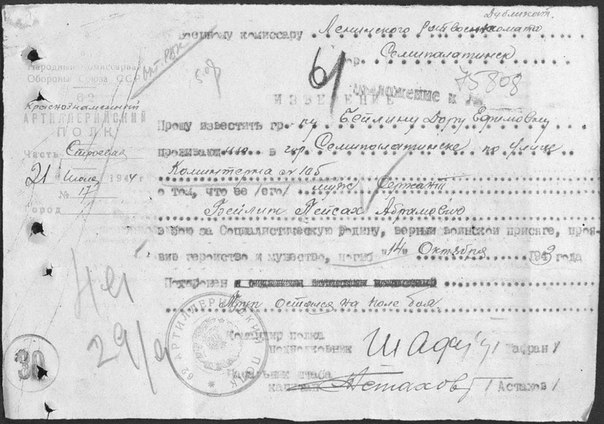 Дубликат.
Военному комиссару Ленинского райвоенкомата
гор. Семипалатинск
75808
Народный Комиссариат
Обороны Союза ССР
63
Краснознаменный
АРТИЛЛЕРИЙСКИЙ
ПОЛК
Часть Строевая
21 Июля 1944
№ 17
Город
ИЗВЕЩЕНИЕ
Прошу известить гр. ку Бейлину Дору Ефимовну
проживающую в гор. Семипалатинске по улице
Коминтерна № 105
о том, что ее /его/ муж Сержант
Бейлин Пейсах Абрамович
в бою за Социалистическую родину, верный воинской присяге, проя-
вив геройство и мужество, погиб "14" Октября 194 года
Похоронен
Труп остался на поле боя
АРТИЛЛЕРИЙСКИЙ ПОЛК
Командир полка
подполковник
Начальник штаба
капитан Астахов /Астахов/
29/9
30